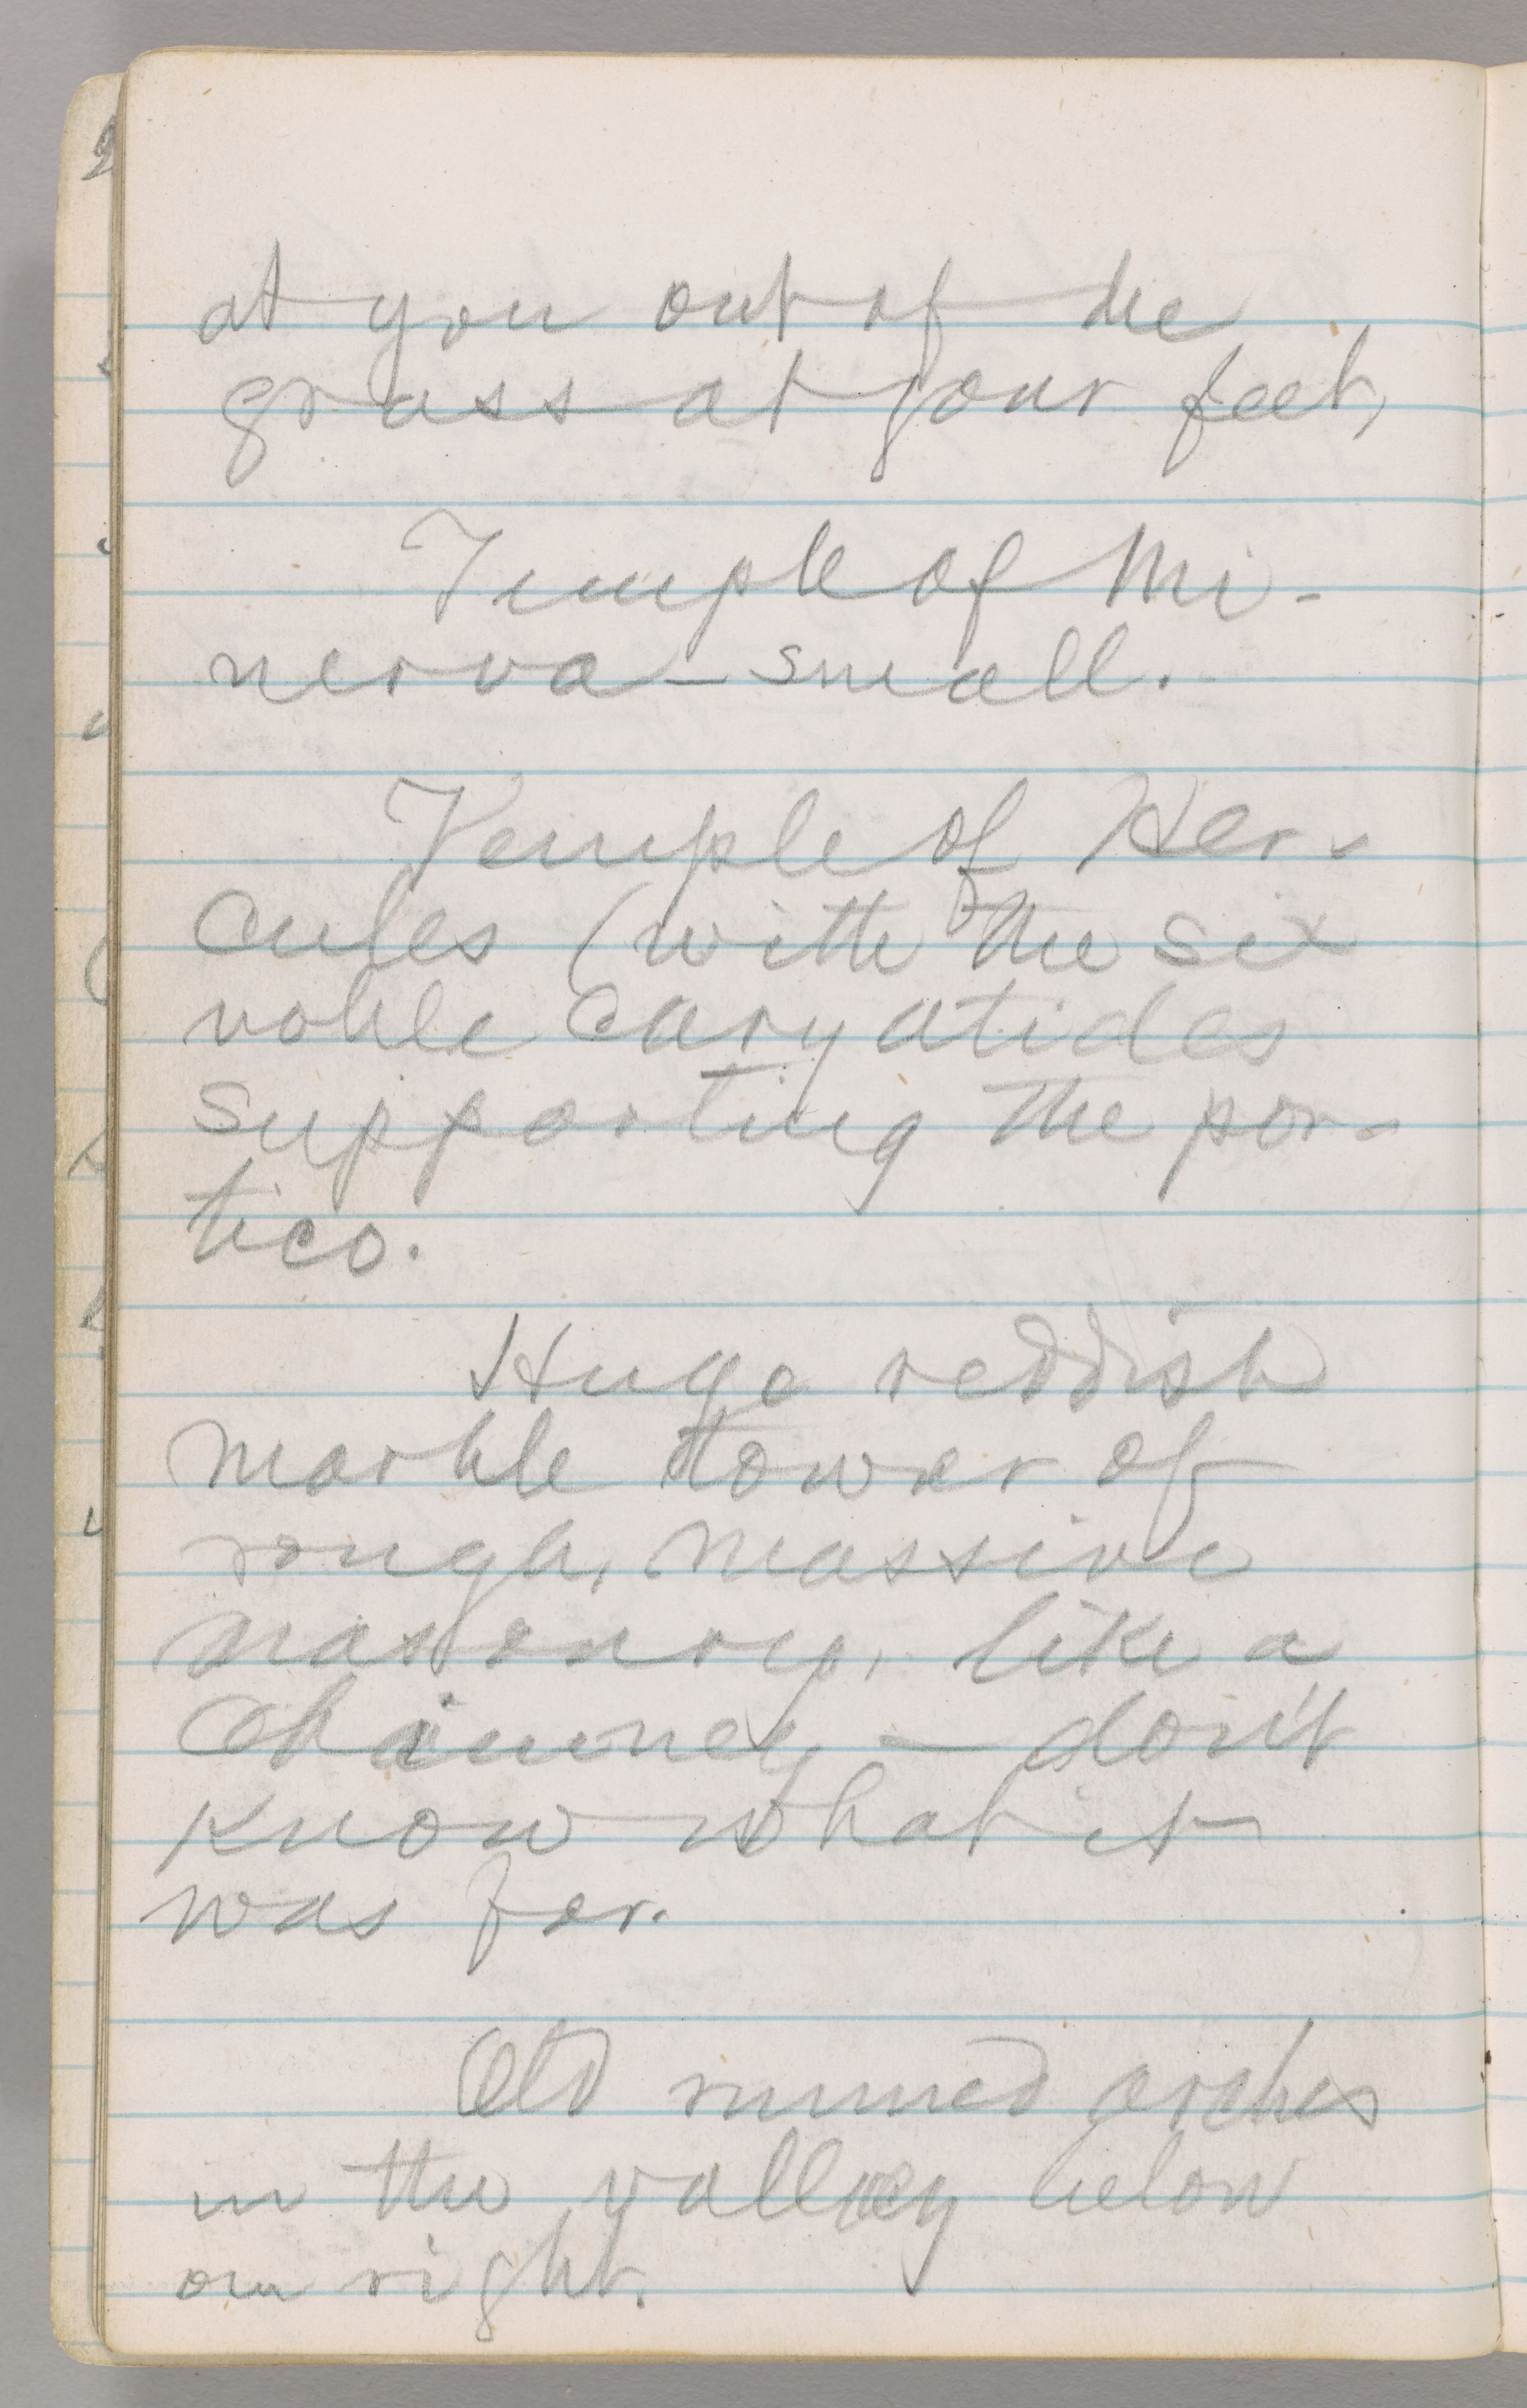 at you out of the
grass at your feet,
Temple of Mi-
nerva — small.
Temple of Her-
cules (with the six
noble caryatides
supporting the por-
tico.
Huge reddish
marble tower of
rough, massive
masonry, like a
chimney — don't
know what it
was for.
Old ruined arches
in the valley below
on right.